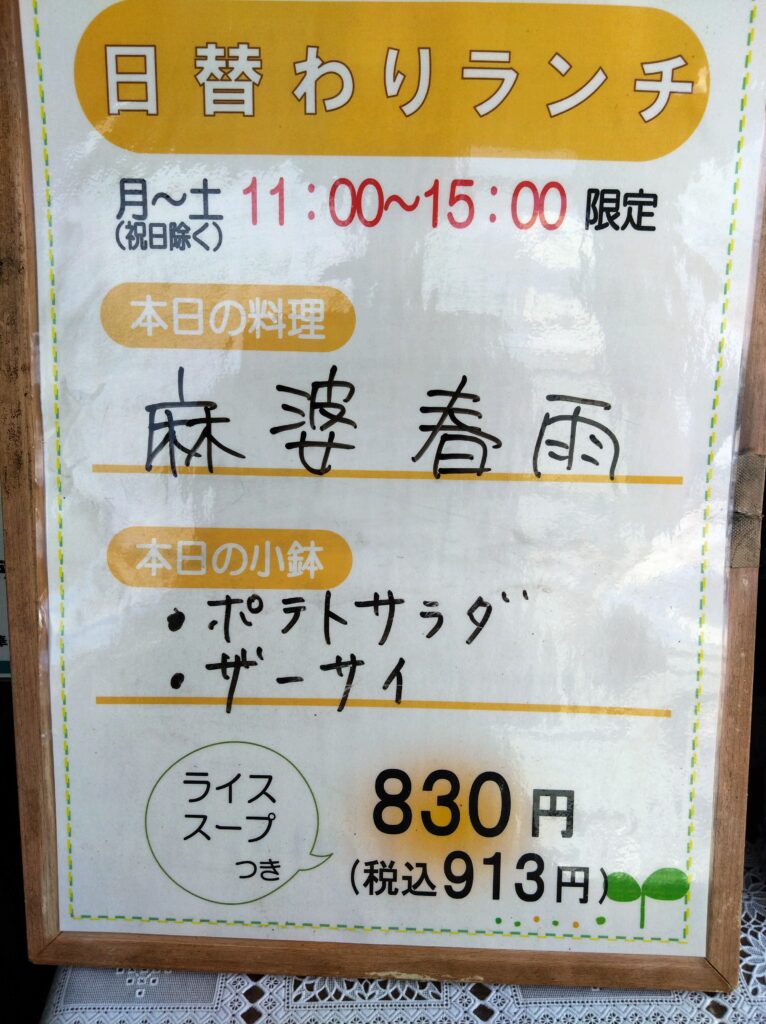 日替わりランチ
月～土 11：00～15：00 限定
（祝日除く）
本日の料理
麻婆春雨
本日の小鉢
・ポテトサラダ
・ザーサイ
ライス
スープ
つき
830円
（税込913円）